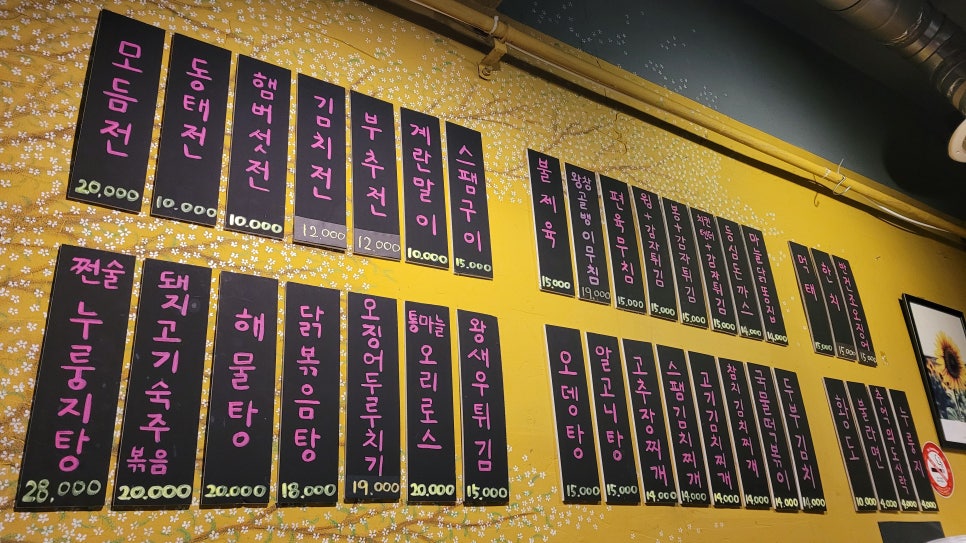 모듬전
20,000
동태전
10.000
햄버섯전
10.000
김치전
12,000
부추전
12,000
계란말이
10.000
스팸구이
15,000
쩐술
누룽지탕
28,000
돼지고기숙주
볶음
20,000
해물탕
20,000
닭볶음탕
18,000
오징어두루치기
19,000
통마늘
오리로스
20,000
왕새우튀김
15,000
불제육
15,000
참골뱅이무침
19,000
편육무침
15,000
윙+감자튀김
15,000
봉+감자튀김
15,000
치킨텐더+감자튀김
15,000
등심돈까스
14,000
마늘닭똥집
14,000
먹태
15,000
한치
15,000
오징어
15,000
오뎅탕
15,000
알고니탕
15,000
고추장찌개
14,000
스팸김치찌개
14,000
고기김치찌개
14,000
참치김치찌개
14,000
국물떡볶이
14,000
두부김치
14,000
황도
10,000
불라면
추억의도시락
누룽지